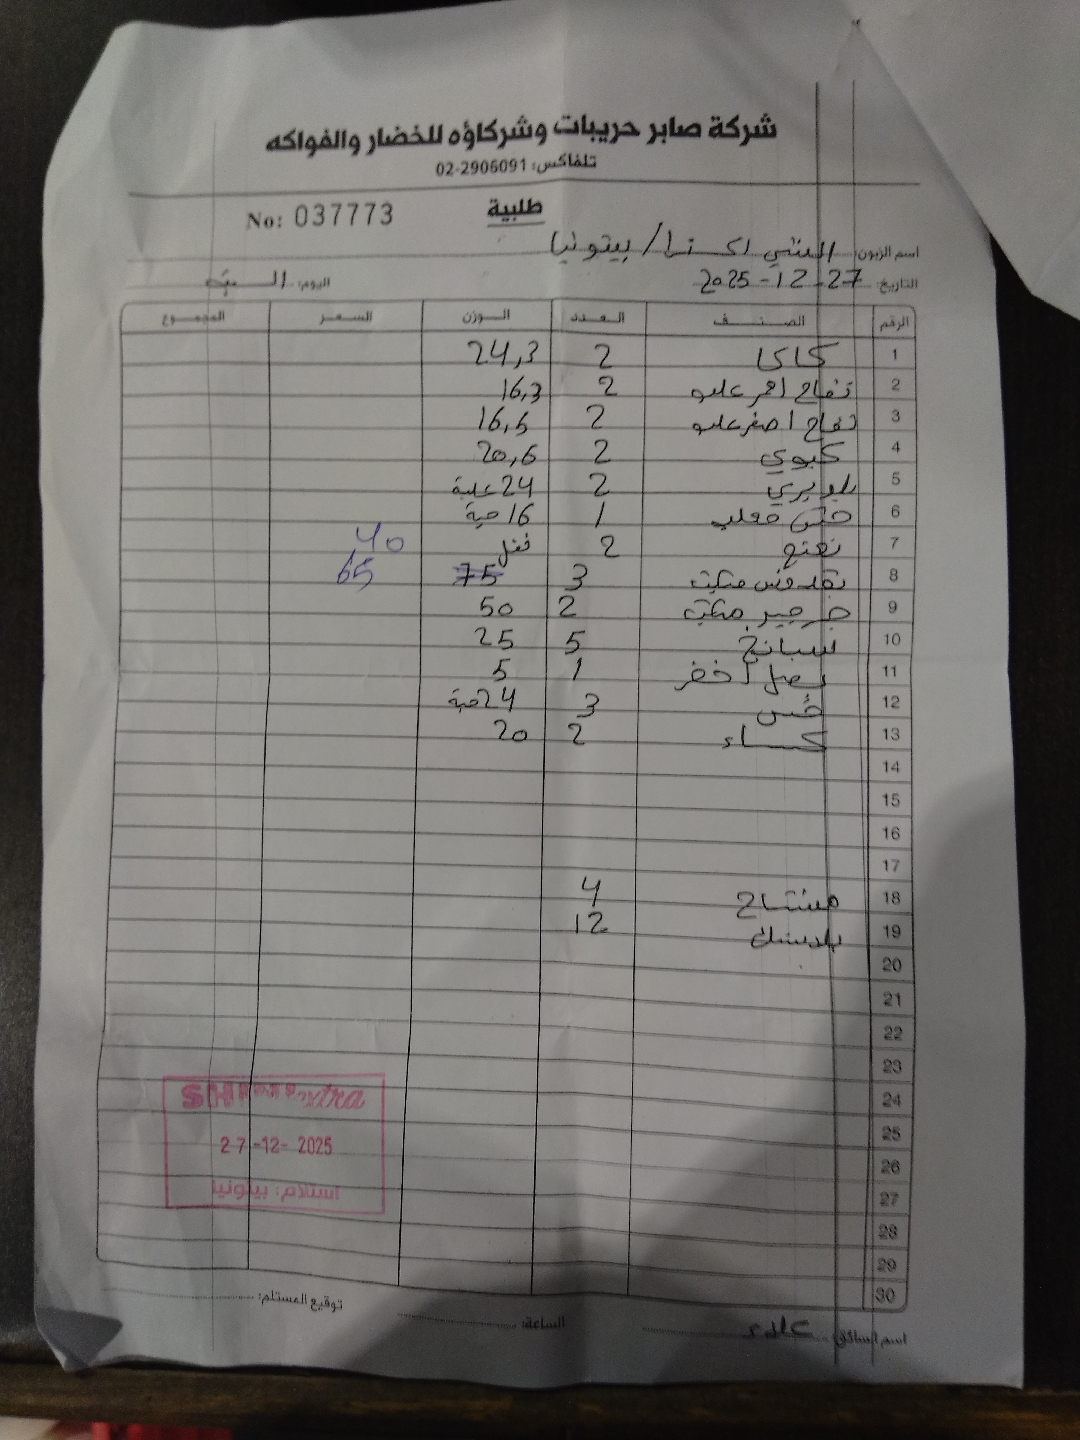 شركة صابر حريبات وشركاؤه للخضار والفواكه
تلفاكس: 02-2906091
طلبية No: 037773
اسم الزبون: اكسترا / بيتونيا
التاريخ: 27-12-2025 اليوم: السبت
الرقم الصنف العدد الوزن السعر المجموع
1 كاكا 2 24,3
2 تفاح احمر علبه 2 16,3
3 تفاح اصفر علبه 2 16,5
4 كيوي 2 20,6
5 بلوبيري 2 24 علبة
6 خس معلب 1 16 حبة
7 نعنع 2 40
8 بقدونس مكتب 3 75 65
9 جرجير مكتب 2 50
10 سبانخ 5 25
11 بصل اخضر 1 5
12 خس 3 24 حبة
13 2 20
14
15
16
17
18 مشتاح 4
19 12
20
21
22
23
24
25
26
27
28
29
30
27-12-2025
استلام: بيتونيا
توقيع المستلم:
الساعة:
اسم السائق: